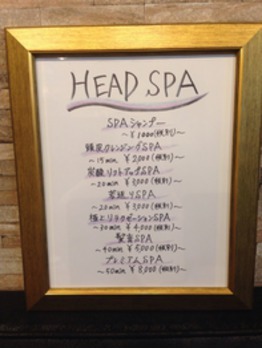 HEAD SPA
SPAシャンプー
～¥1000(税別)～
頭皮クレンジングSPA
～15min ¥2,000(税別)～
炭酸リフトアップSPA
～20min ¥3,000(税別)～
SPA
～20min ¥3,000(税別)～
極上リラクゼーションSPA
～30min ¥4,000(税別)～
髪質SPA
～40min ¥5,000(税別)～
プレミアムSPA
～50min ¥8,000(税別)～